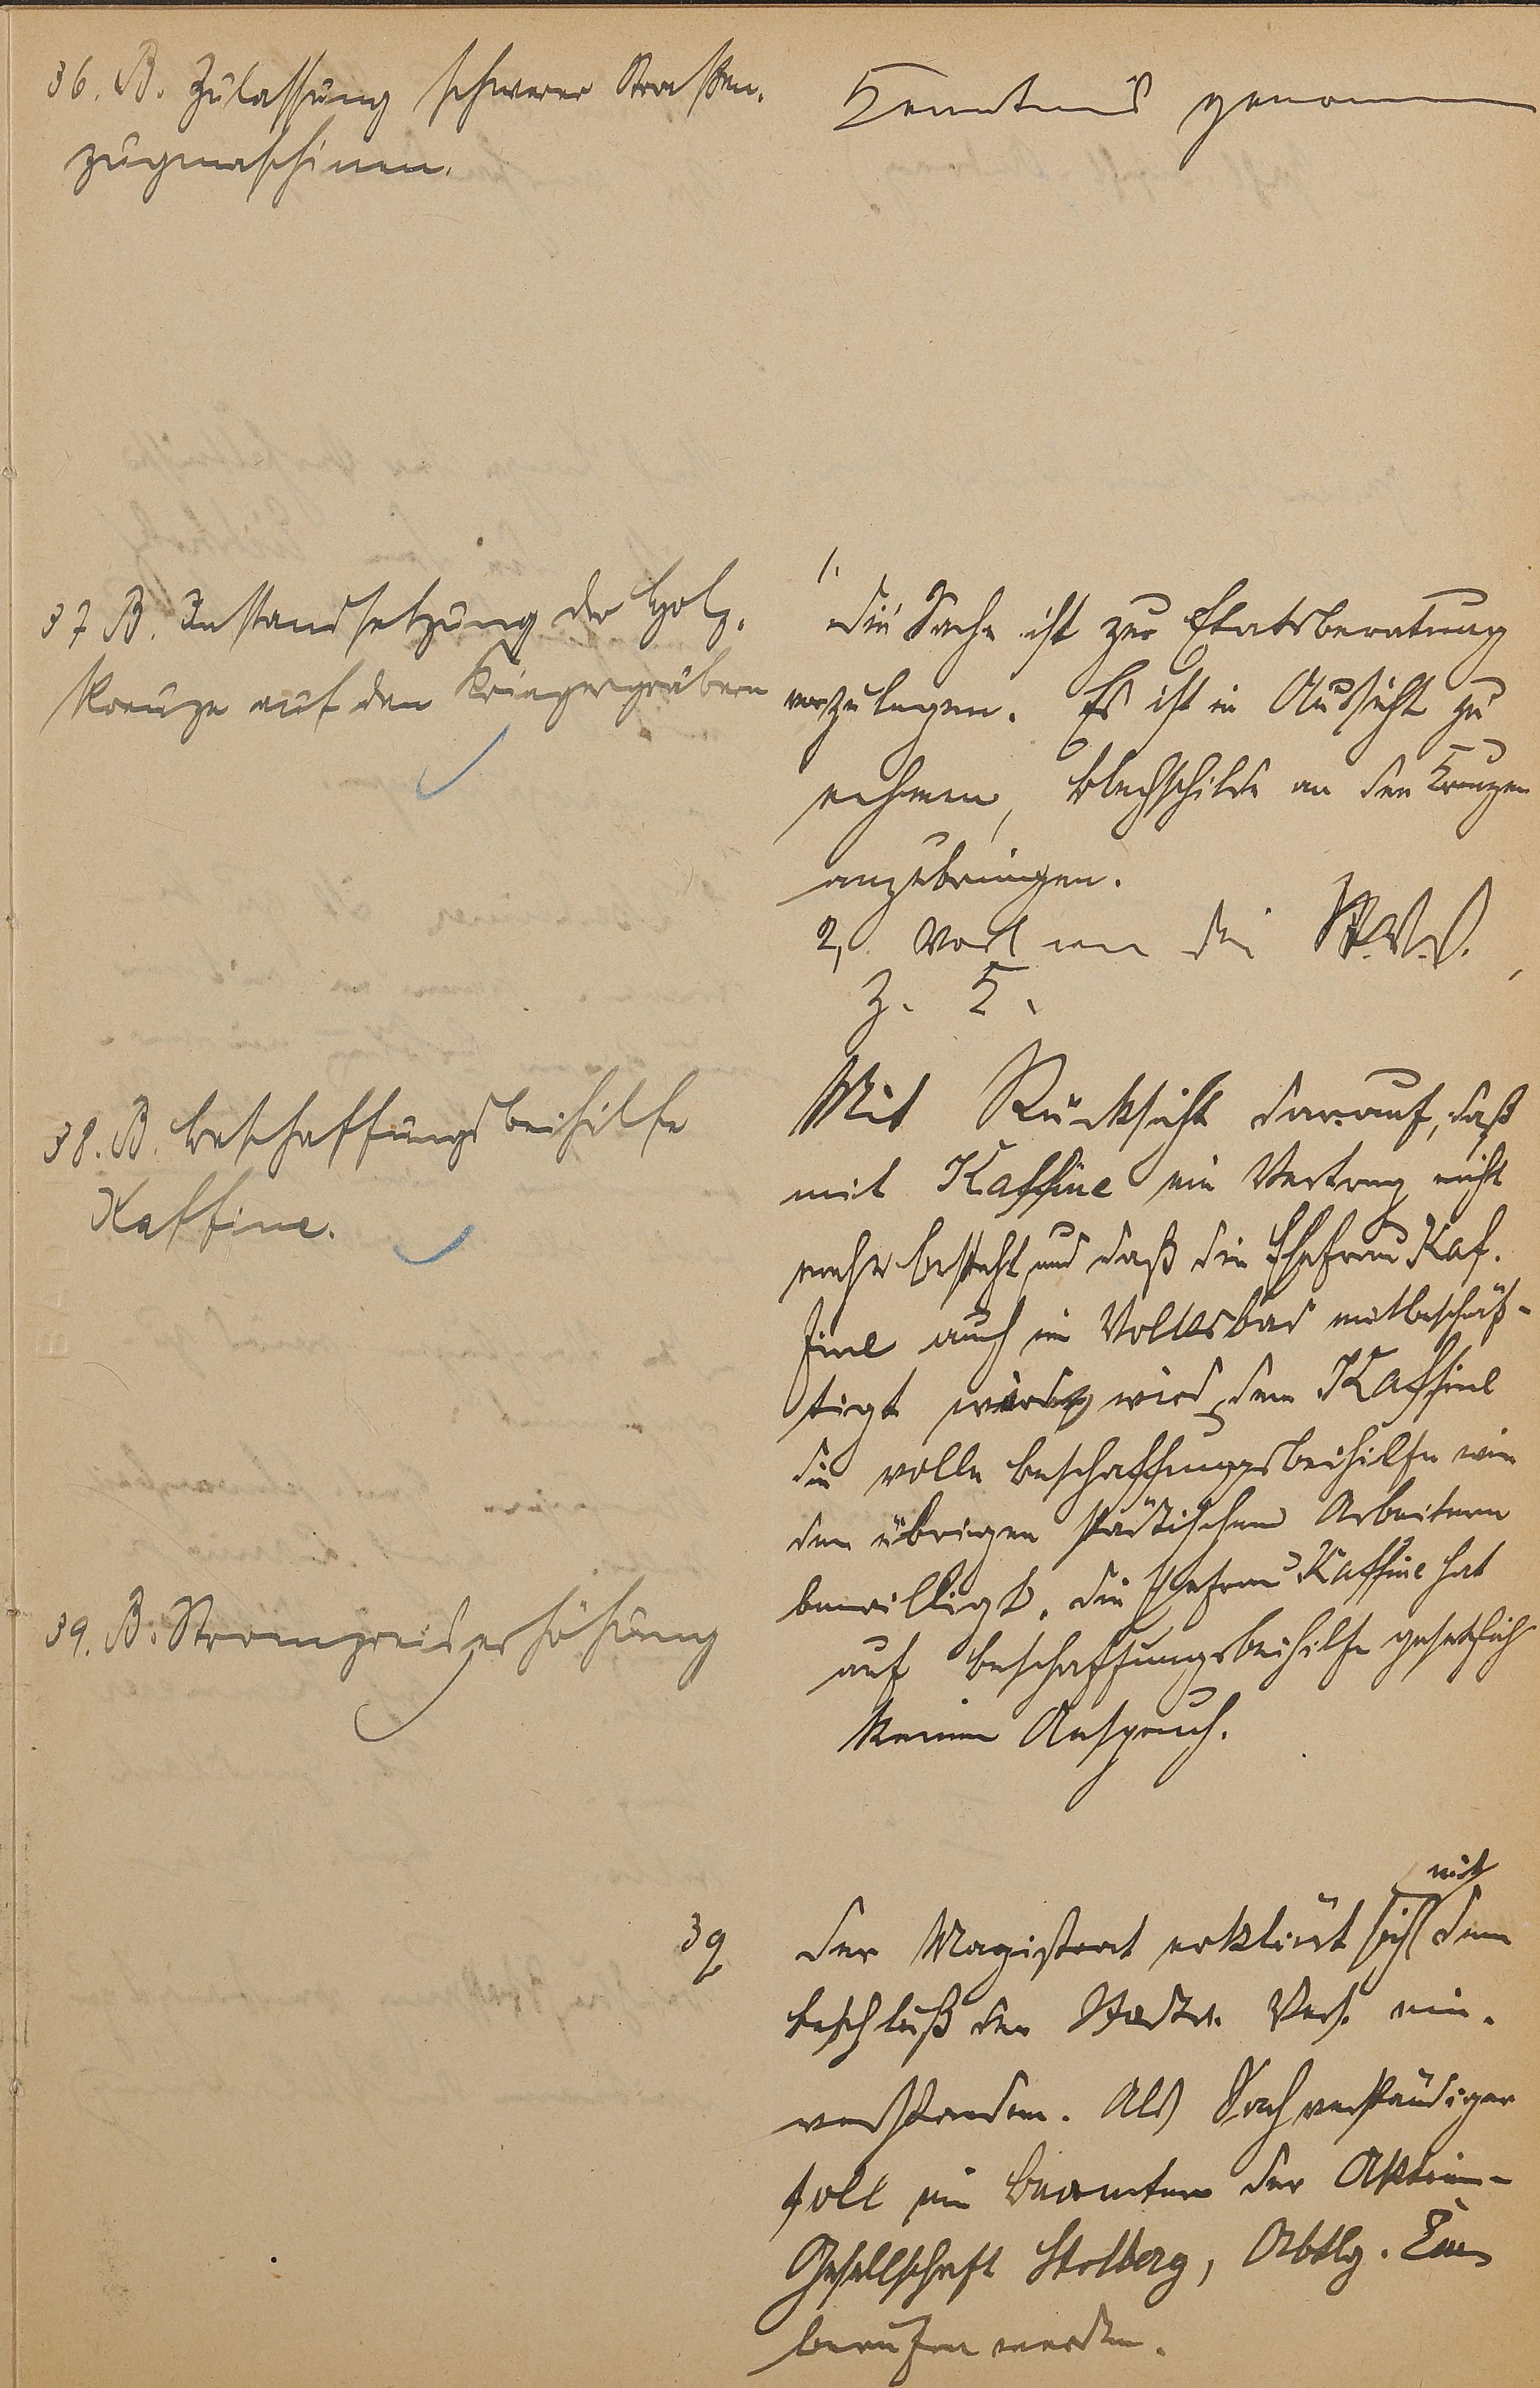 36. B. Zulassung schwerer Straßen-
zugmaschinen.
Kenntnis genommen
37 B. Instandsetzung der Holz-
kreuze auf den Kriegergräbern
1.
Die Sache ist zur Etatsberatung
vorzulegen. Es ist in Aussicht zu
nehmen, Blechschilde an den Kreuzen
anzubringen.
2, Vorl. an die
z. K.
38. B. Beschaffungsbeihilfe
Kaffine.
Mit Rücksicht darauf, daß
mit Kaffine ein Vertrag nicht
mehr besteht und daß die Ehefrau Kaf-
fine auch im Volksbad mitbeschäf-
tigt wird, dem Kaffine
die volle Beschaffungsbeihilfe wie
den übrigen städtischen Arbeitern
bewilligt. Die Ehefrau Kaffine hat
auf Beschaffungsbeihilfe gesetzlich
keinen Anspruch.
39. B. Strompreiserhöhung
39 Der Magistrat erklärt sich mit dem
Beschluß der Stadtv. Vers. ein-
verstanden. Als Sachverständiger
soll ein Beamter der Aktien-
Gesellschaft Stolberg, Abtlg.
berufen werden.